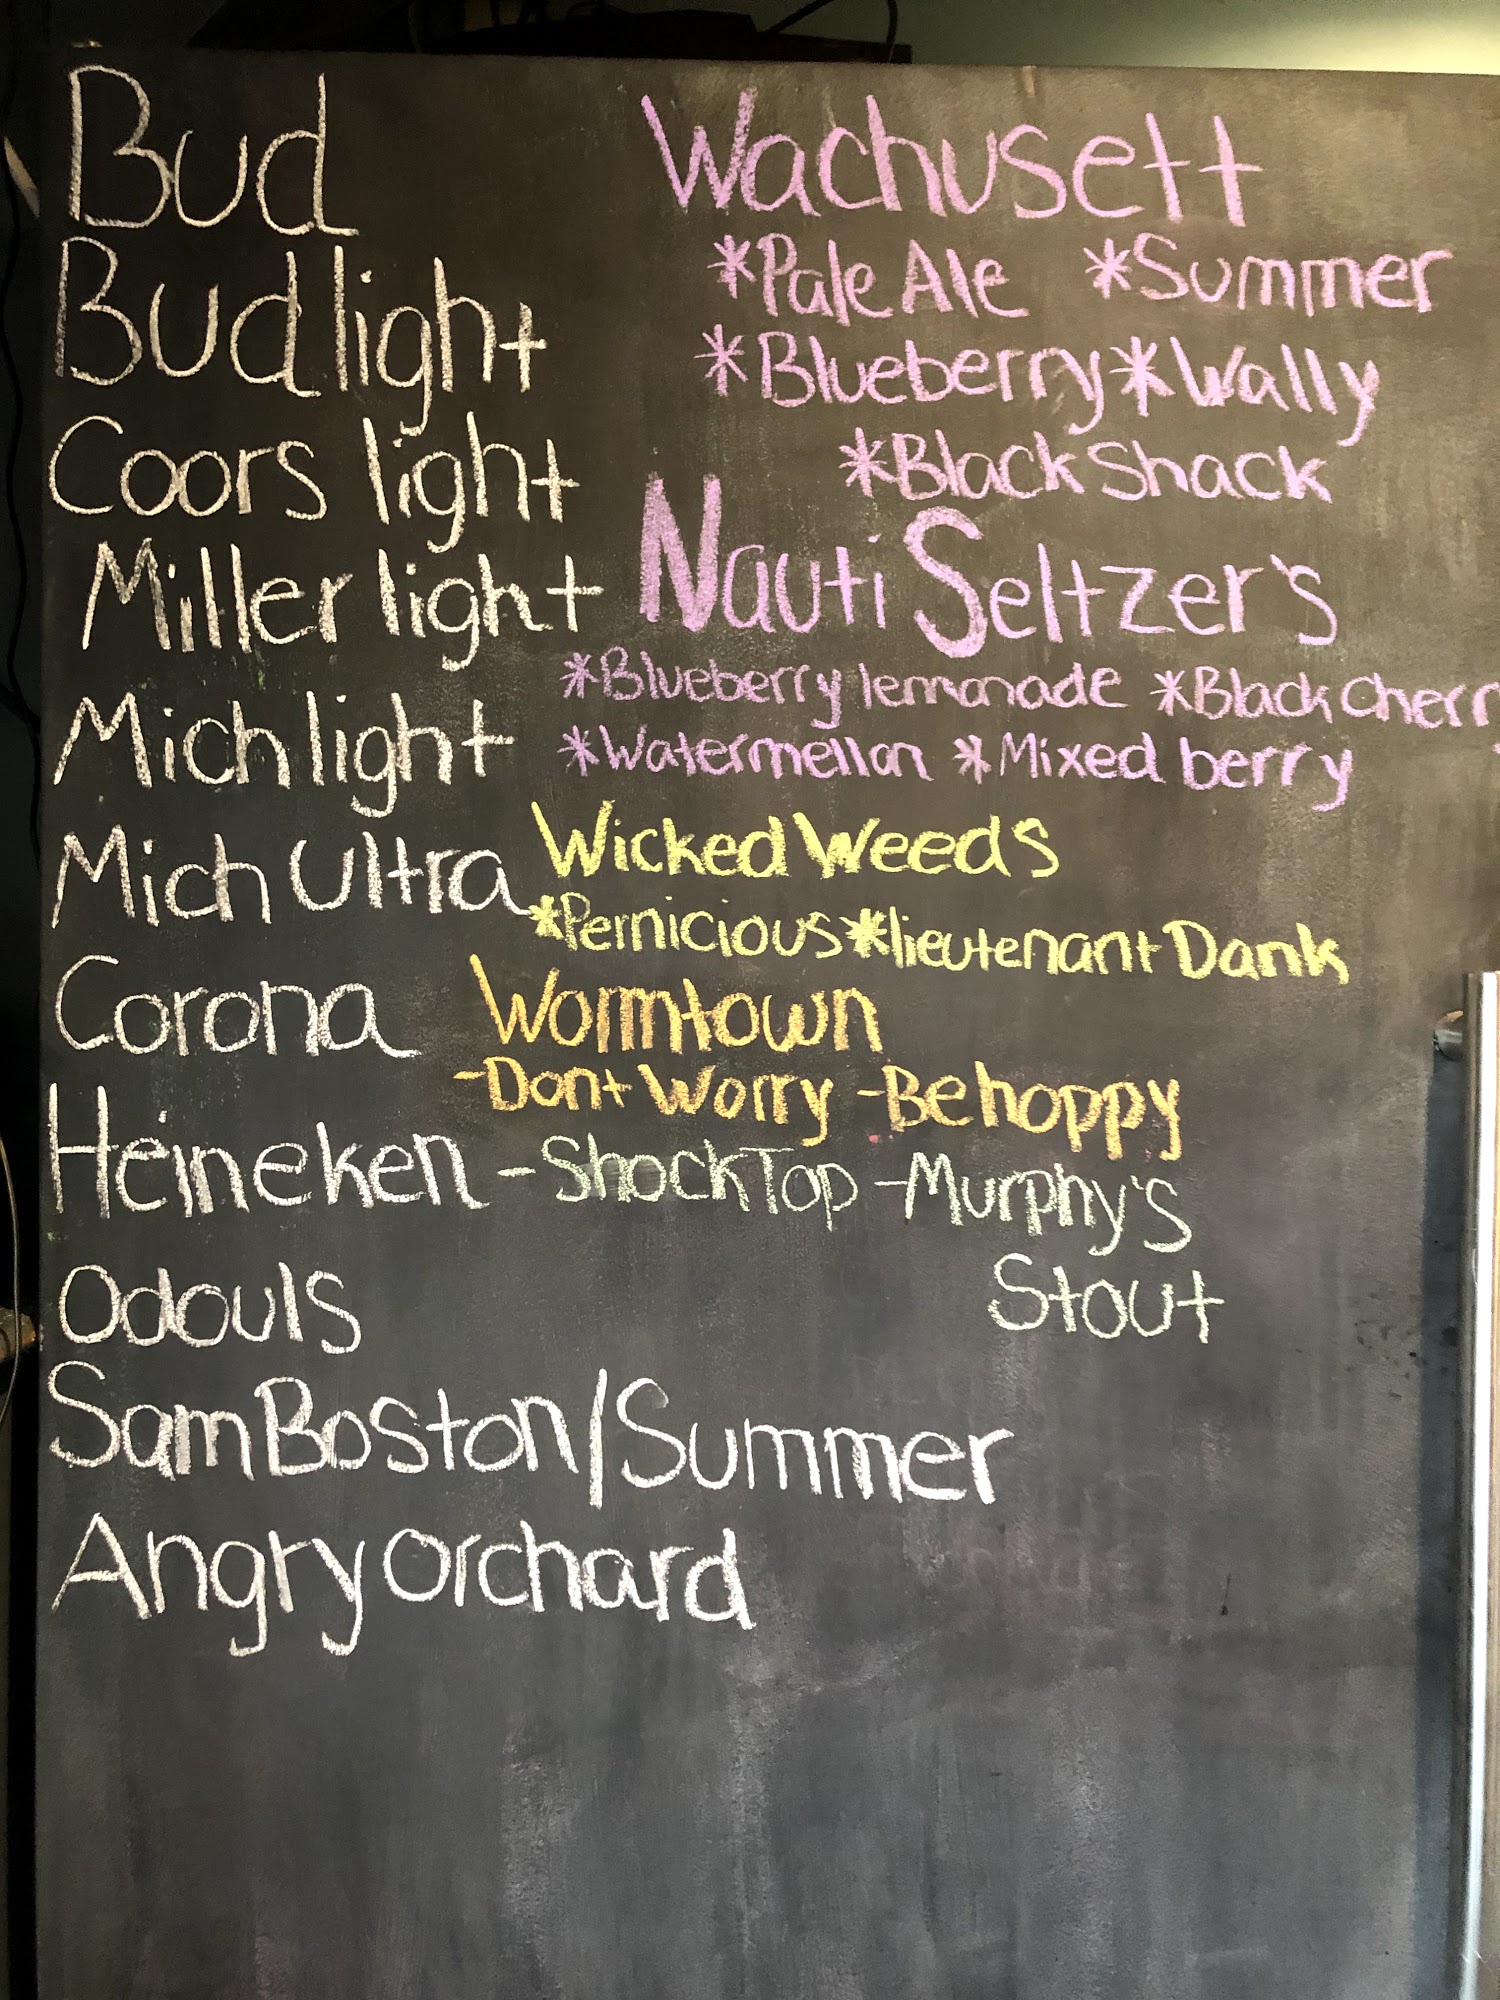 Bud
Bud light
Coors light
Miller light
Mich light
Mich Ultra
Corona
Heineken
Odouls
Sam Boston/Summer
Angry Orchard
Wachusett
*Pale Ale *Summer
*Blueberry *Wally
*Black Shack
Nauti Seltzer's
*Blueberry lemonade *Black Cherr
*Watermellon *Mixed berry
Wicked Weeds
*Pernicious *lieutenant Dank
Wormtown
-Dont Worry -Be hoppy
-Shock Top -Murphy's
Stout